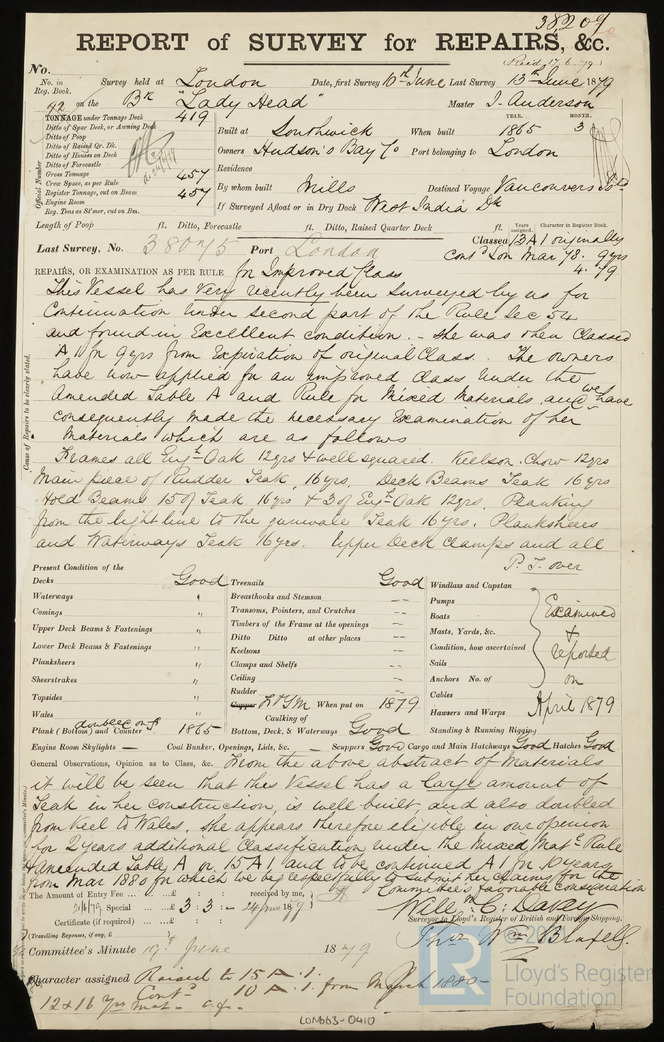 38209
REPORT of SURVEY for REPAIRS, &c.
(Recd 17.6.79)
No.
No. in Reg. Book. Survey held at London Date, first Survey 10th June Last Survey 13th June 1879
92 on the Bk "Lady Head" Master J. Anderson
TONNAGE under Tonnage Deck 419
Ditto of Spar Deck, or Awning Deck
Ditto of Poop
Ditto of Raised Qr. Dk.
Ditto of House on Deck
Ditto of Forecastle
Gross Tonnage 457
Crew Space, as per Rule
Register Tonnage, cut on Beam 457
Engine Room
Reg. Tons as St'mer, cut on Bm.
Official Number
YEAR. MONTH.
Built at Southwick When built 1865 3
Owners Hudson's Bay Co Port belonging to London
Residence
By whom built Mills Destined Voyage Vancouvers Isd
If Surveyed Afloat or in Dry Dock West India Dk
Length of Poop ft. Ditto, Forecastle ft. Ditto, Raised Quarter Deck ft.
Years assigned. Character in Register Book.
Last Survey, No. 38075 Port London
Classed 13 A 1 originally
Contd Lon Mar 78. 9yrs
4. 79
REPAIRS, OR EXAMINATION AS PER RULE for Improved Class
This Vessel has very recently been surveyed by us for
Continuation under second part of the Rule Sec 54
and found in Excellent condition. - She was then Classed
A 1 for 9yrs from Expiration of original Class. The owners
have now applied for an improved class under the
amended Table A and Rule for Mixed Materials, and we have
consequently made the necessary Examination of her
Materials which are as follows
Frames all Engh Oak 12yrs & well squared. Keelson. Chow 12yrs
Main piece of Rudder Teak, 16yrs. Deck Beams Teak 16yrs
Hold Beams 15 of Teak 16yrs & 3 of Engh Oak 12yrs. Planking
from the light line to the gunwale Teak 16yrs. Planksheers
and Waterways Teak 16yrs. Upper Deck Clamps and all
P. T. over
Cause of Repairs to be clearly stated.
Present Condition of the
Decks Good
Waterways "
Comings "
Upper Deck Beams & Fastenings "
Lower Deck Beams & Fastenings "
Planksheers "
Sheerstrakes "
Topsides "
Wales "
Plank (Bottom) and Counter doubled 1865
Treenails Good
Breasthooks and Stemson
Transoms, Pointers, and Crutches
Timbers of the Frame at the openings
Ditto Ditto at other places
Keelsons
Clamps and Shelfs
Ceiling
Rudder
Copper When put on 1879
Caulking of Bottom, Deck, & Waterways Good
Windlass and Capstan
Pumps
Boats
Masts, Yards, &c.
Condition, how ascertained
Sails
Anchors No. of
Cables
Hawsers and Warps
Standing & Running Rigging
Examined & reported on April 1879
Engine Room Skylights — Coal Bunker, Openings, Lids, &c. — Scuppers Good Cargo and Main Hatchways Good Hatches Good
General Observations, Opinion as to Class, &c. From the above abstract of Materials
it will be seen that this Vessel has a large amount of
Teak in her construction, is well built, and also doubled
from Keel to Wales, she appears therefore eligible in our opinion
for 2 years additional Classification under the Mixed Matl Rule
& amended Table A or 15 A 1, and to be continued A 1 for 10 years
from Mar 1880 for which we beg respectfully to submit her claims for the
Committee's favorable consideration
The Amount of Entry Fee ... £ : : received by me,
Special £ 3 : 3 : 24 June 1879
Certificate (if required) ... £ : :
(Travelling Expenses, if any, £ )
Willm C. Davey
Surveyor to Lloyd's Register of British and Foreign Shipping.
Thos Wm Blaxell.
Committee's Minute 17th June 1879
Character assigned Raised to 15 A. 1.
Contd 10 A. 1. from March 1880
12 & 16 yrs mat. c.f.
LON663-0410
© 2021
LR
Lloyd's Register
Foundation